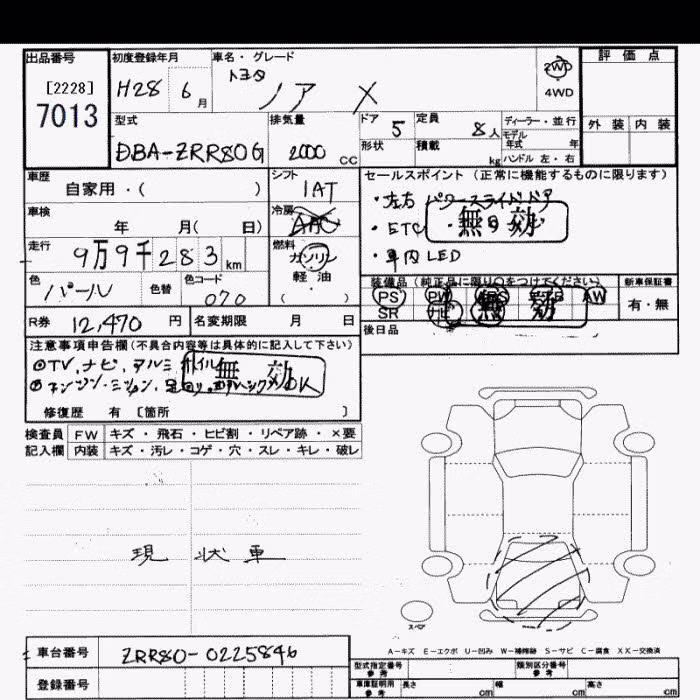 出品番号
[2228]
7013
初度登録年月
H28 6月
車名・グレード
トヨタ
ノア X
2WD
4WD
評価点
外装 内装
型式
DBA-ZRR80G
排気量
2000 CC
ドア 5
形状
定員 8人
積載 kg
ディーラー・並行
モデル
年式 年
ハンドル 左・右
車歴
自家用・( )
シフト
IAT
車検
年 月( 日)
冷房
AAC
走行
9万9千283km
燃料
ガソリン
軽油
( )
色
パール
色替
色コード
070
セールスポイント(正常に機能するものに限ります)
・左右 パワースライドドア
・ETC
無効
・車内LED
装備品(純正品に限り○をつけてください)
新車保証書
PS PW AW
SR ナビ
無効
有・無
後日品
R券 12,470円
名変期限 月 日
注意事項申告欄(不具合内容等は具体的に記入して下さい)
TV,ナビ,アルミホイール
エンジン・ミッション, OK
無効
修復歴 有 [箇所 ]
検査員 FW キズ・飛石・ヒビ割・リペア跡・×要
記入欄 内装 キズ・汚レ・コゲ・穴・スレ・キレ・破レ
現状車
スペア
A-キズ E-エクボ U-凹み W-補修跡 S-サビ C-腐食 XX-交換済
車台番号 ZRR80-0225846
登録番号
型式指定番号
参考
類別区分番号
参考
車庫証明用
参考
長さ cm 幅 cm 高さ cm